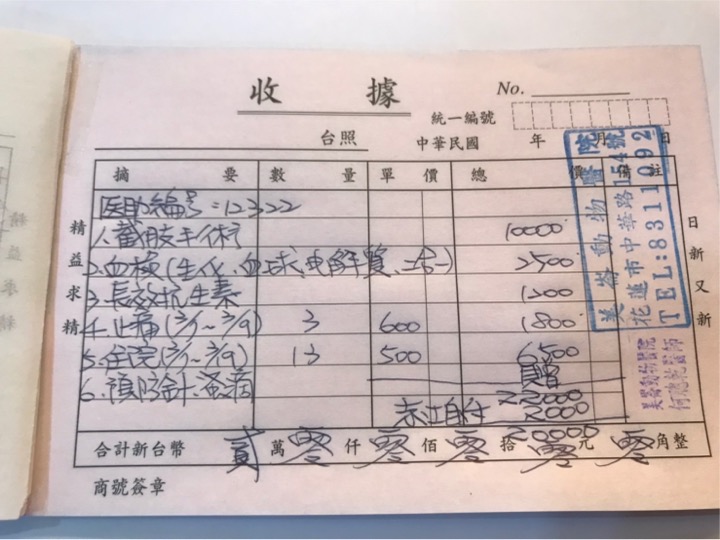 收 據
No.
統一編號
台照 中華民國 年 月 日
摘 要 數 量 單 價 總 價 備 註
医助編号:12322
1.截肢手術 10000
2.血檢(生化、血球、電解質、 2500
3.長效抗生素 1200
4.止痛 3 600 1800
5.住院 13 500 6500
6.預防針、蚤滴 贈
22000
2000
20000
合計新台幣 貳 萬 零 仟 零 佰 零 拾 零 元 零 角整
商號簽章
精益求精
日新又新
美崙動物醫院
花蓮市中華路154號
TEL:8311092
美崙動物醫院